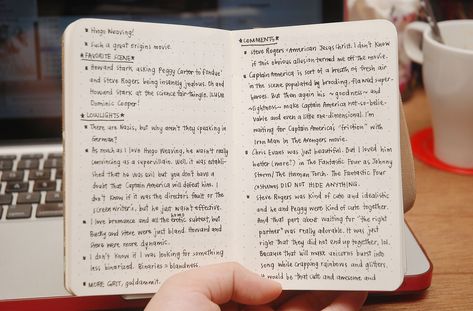 * Hugo Weaving!
* Such a great origins movie.
* FAVORITE SCENE *
* Howard Stark asking Peggy Carter to 'fondue'
and Steve Rogers being insanely jealous. Oh and
Howard Stark at the science fair-thingie.
Dominic Cooper!
* LOWLIGHTS *
* There are Nazis, but why aren't they speaking in
german?
* As much as I love Hugo Weaving, he wasn't really
convincing as a supervillain. Well, it was establi-
shed that he was evil but you don't have a
doubt that Captain America will defeat him. I
don't know if it was the director's fault or the
screenwriter's, but he just wasn't effective.
* I love bromance and all the homoerotic subtext, but
Bucky and Steve were just bland. Howard and
Steve were more dynamic.
* I don't know if I was looking for something
less binarized. Binaries = blandness.
* MORE GRIT, goddammit.
* COMMENTS *
* Steve Rogers = American Jesus Christ. I don't know
if this obvious allusion turned me off the movie.
* Captain America is sort of a breath of fresh air
in the scene populated by brooding, flawed super-
heroes. But then again his ~goodness~ and
~rightness~ make Captain America not-so-belie-
vable and even a little one-dimensional. I'm
waiting for Captain America's "friction" with
Iron Man in The Avengers movie.
* Chris Evans was just beautiful. But I loved him
better (more?) in The Fantastic Four as Johnny
Storm / The Human Torch. The Fantastic Four
costumes DID NOT HIDE ANYTHING.
* Steve Rogers was kind of cute and idealistic
and he and Peggy were kind of cute together.
And that part about waiting for "the right
partner" was really adorable. It was just
right that they did not end up together, lol.
Because that will make unicorns burst into
song while crapping rainbows and glitters.
It would be that cute and awesome and